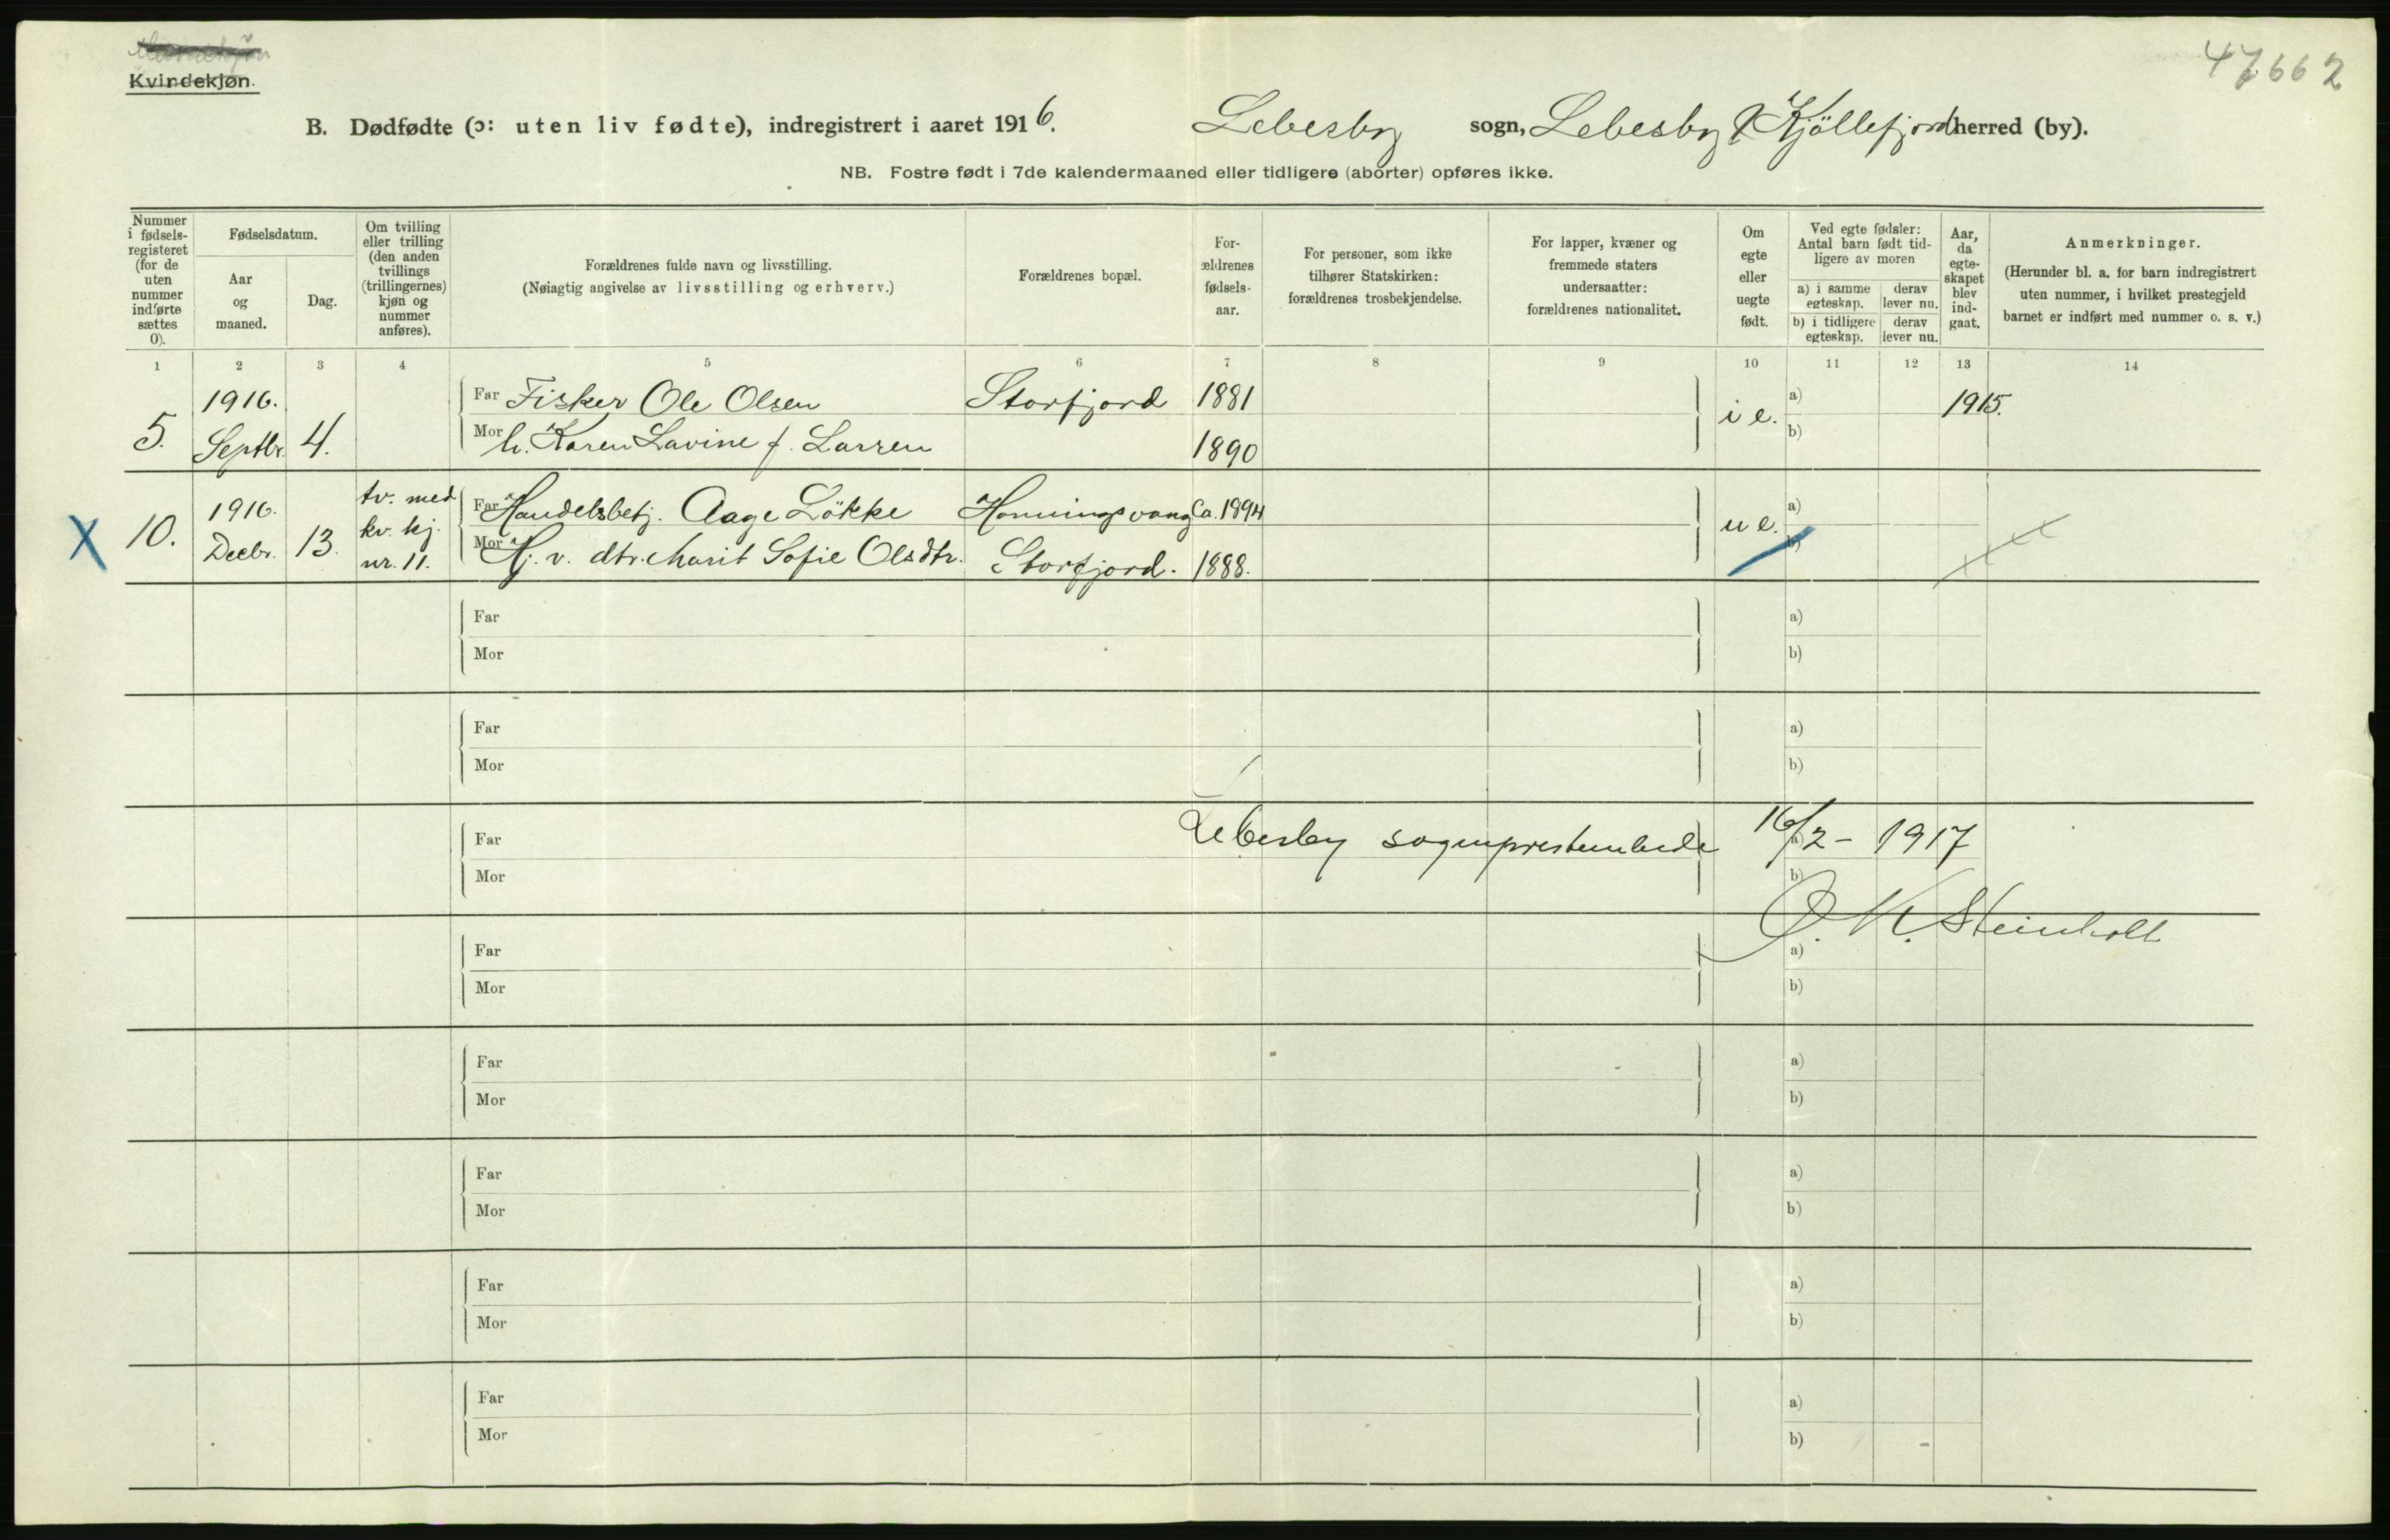 47662
Kvindekjøn.
B. Dødfødte (ɔ: uten liv fødte), indregistrert i aaret 1916. Lebesby sogn, Lebesby & Kjöllefjord herred (by).
NB. Fostre født i 7de kalendermaaned eller tidligere (aborter) opføres ikke.
Nummer i fødsels-registeret (for de uten nummer indførte sættes 0).
Fødselsdatum.
Aar og maaned.
Dag.
Om tvilling eller trilling (den anden tvillings (trillingernes) kjøn og nummer anføres).
Forældrenes fulde navn og livsstilling.
(Nøiagtig angivelse av livsstilling og erhverv.)
Forældrenes bopæl.
For-ældrenes fødsels-aar.
For personer, som ikke tilhører Statskirken: forældrenes trosbekjendelse.
For lapper, kvæner og fremmede staters undersaatter: forældrenes nationalitet.
Om egte eller uegte født.
Ved egte fødsler: Antal barn født tid-ligere av moren
a) i samme egteskap.
derav lever nu.
b) i tidligere egteskap.
derav lever nu.
Aar, da egte-skapet blev ind-gaat.
Anmerkninger.
(Herunder bl. a. for barn indregistrert uten nummer, i hvilket prestegjeld barnet er indført med nummer o. s. v.)
1 2 3 4 5 6 7 8 9 10 11 12 13 14
1916. Far Fisker Ole Olsen Storfjord 1881 a) 1915.
5. Septbr. 4. Mor h. Karen Lavine f. Larsen 1890 i e. b)
X 10. 1916. tv. med Far Handelsbetj. Aage Lökke Honningsvaag Ca. 1894 u e. a)
Decbr. 13. kv. kj. nr. 11. Mor Hj. v. dtr. Marit Sofie Olsdtr. Storfjord. 1888. b)
Far a)
Mor b)
Far a)
Mor b)
Far Lebesby sogneprestembede 16/2 - 1917 a)
Mor b)
O. M. Steinholt
Far a)
Mor b)
Far a)
Mor b)
Far a)
Mor b)
Far a)
Mor b)
Far a)
Mor b)